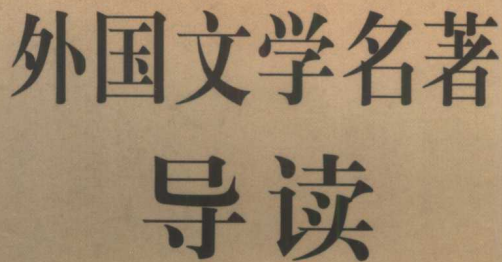 外国文学名著
导读